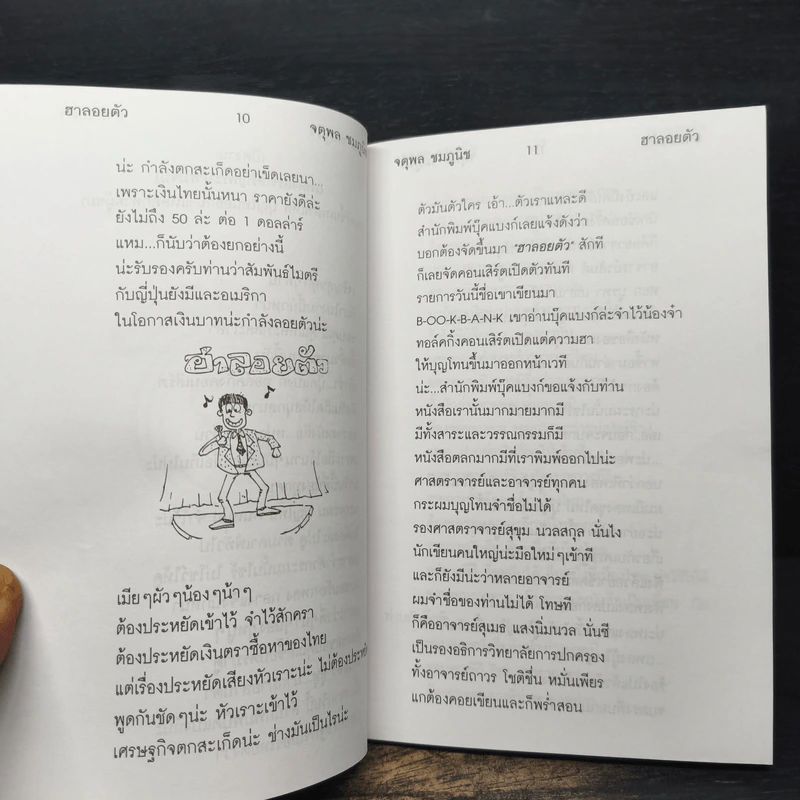 ฮาลอยตัว
10
จตุพล ชมภูนิช
น่ะ กำลังตกสะเก็ดอย่าเข็ดเลยนา...
เพราะเงินไทยนั้นหนา ราคายังดีล่ะ
ยังไม่ถึง 50 ล่ะ ต่อ 1 ดอลล่าร์
แหม...ก็นับว่าต้องยกอย่างนี้
น่ะรับรองครับท่านว่าสัมพันธ์ไมตรี
กับญี่ปุ่นยังมีและอเมริกา
ในโอกาสเงินบาทน่ะกำลังลอยตัวน่ะ
ฮาลอยตัว
เมียๆผัวๆน้องๆน้าๆ
ต้องประหยัดเข้าไว้ จำไว้สักครา
ต้องประหยัดเงินตราซื้อหาของไทย
แต่เรื่องประหยัดเสียงหัวเราะน่ะ ไม่ต้องประหยัด
พูดกันชัดๆน่ะ หัวเราะเข้าไว้
เศรษฐกิจตกสะเก็ดน่ะ ช่างมันเป็นไรน่ะ
จตุพล ชมภูนิช
11
ฮาลอยตัว
ตัวมันตัวใคร เอ้า...ตัวเราแหละดี
สำนักพิมพ์บุ๊คแบงก์เลยแจ้งดังว่า
บอกต้องจัดขึ้นมา "ฮาลอยตัว" สักที
ก็เลยจัดคอนเสิร์ตเปิดตัวทันที
รายการวันนี้ชื่อเขาเขียนมา
B-OO-K-B-A-N-K เขาอ่านบุ๊คแบงก์ล่ะจำไว้น้องจ๋า
ทอล์คกิ้งคอนเสิร์ตเปิดแต่ความฮา
ให้บุญโทนขึ้นมาออกหน้าเวที
น่ะ...สำนักพิมพ์บุ๊คแบงก์ขอแจ้งกับท่าน
หนังสือเรานั้นมากมายมากมี
มีทั้งสาระและวรรณกรรมก็มี
หนังสือตลกมากมีที่เราพิมพ์ออกไปน่ะ
ศาสตราจารย์และอาจารย์ทุกคน
กระผมบุญโทนจำชื่อไม่ได้
รองศาสตราจารย์สุขุม นวลสกุล นั่นไง
นักเขียนคนใหญ่น่ะมือใหม่ๆเข้าที
และก็ยังมีน่ะว่าหลายอาจารย์
ผมจำชื่อของท่านไม่ได้ โทษที
ก็คืออาจารย์สุเมธ แสงนิ่มนวล นั่นซี
เป็นรองอธิการวิทยาลัยการปกครอง
ทั้งอาจารย์ถาวร โชติชื่น หมั่นเพียร
แกต้องคอยเขียนและก็พร่ำสอน